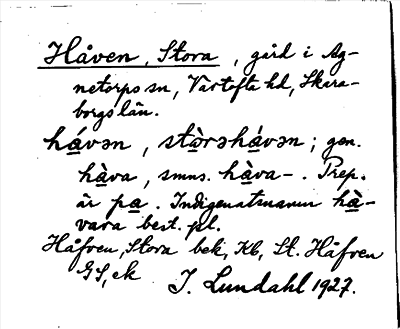 Håven, Stora, gård i Ag-
netorps sn, Vartofta hd, Skara-
borgs län.
hávən, stòrəhávən; gen.
hàva, smns. hàva-. Prep.
är pa. Indigenatsnamn hà-
vara best. pl.
Håfven, Stora bek, Kb, St. Håfven
GS, ek
I. Lundahl 1927.